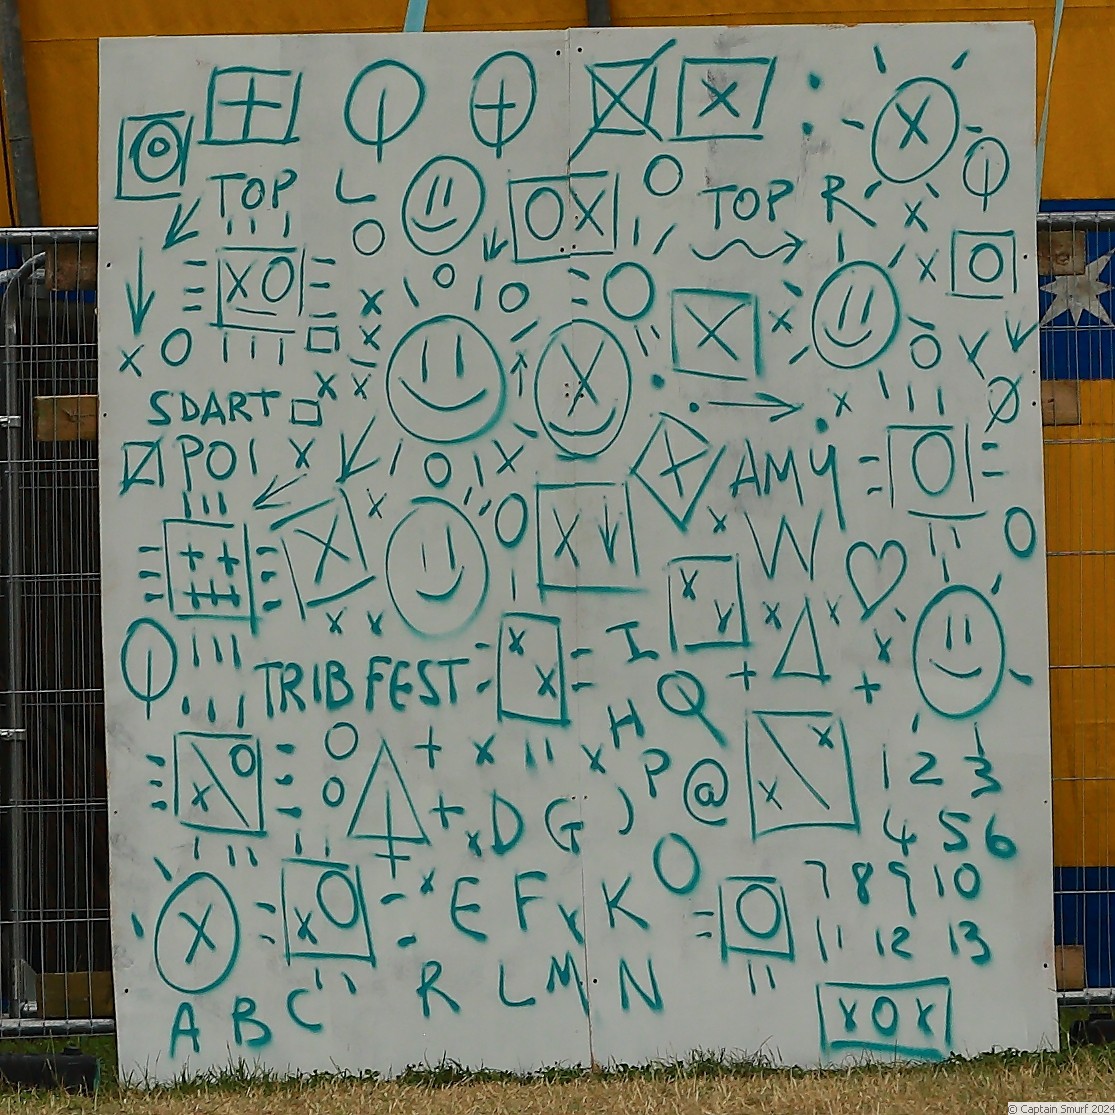 TOP L
TOP R
XO
OX
SDART
POI
AMY
W
TRIBFEST
I
H
Q
P @
D G J
1 2 3
4 5 6
7 8 9 10
11 12 13
E F K
O
A B C R L M N
XOX
© Captain Smurf 2024